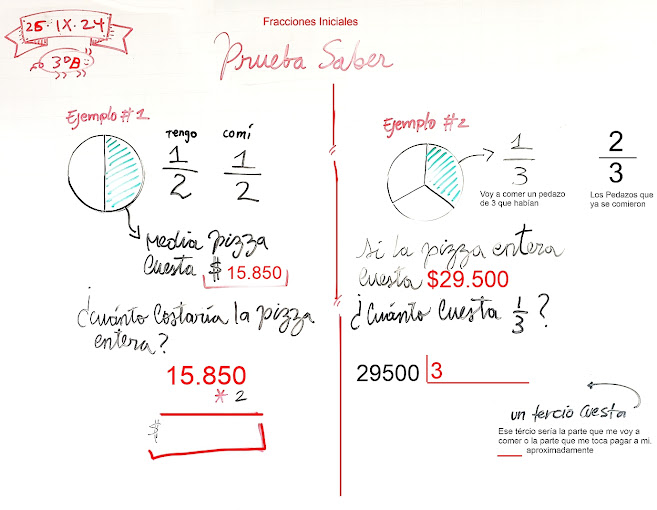 Fracciones Iniciales
25·IX·24
3ºB
Prueba Saber
Ejemplo #1
Tengo
comí
1
2
1
2
Media pizza
Cuesta $ 15.850
¿Cuánto Costaría la pizza
entera?
15.850
* 2
$
Ejemplo #2
1
3
2
3
Voy a comer un pedazo
de 3 que habían
Los Pedazos que
ya se comieron
Si la pizza entera
Cuesta $29.500
¿Cuánto Cuesta 1/3 ?
29500 3
un tercio Cuesta
Ese tércio sería la parte que me voy a
comer o la parte que me toca pagar a mi.
aproximadamente